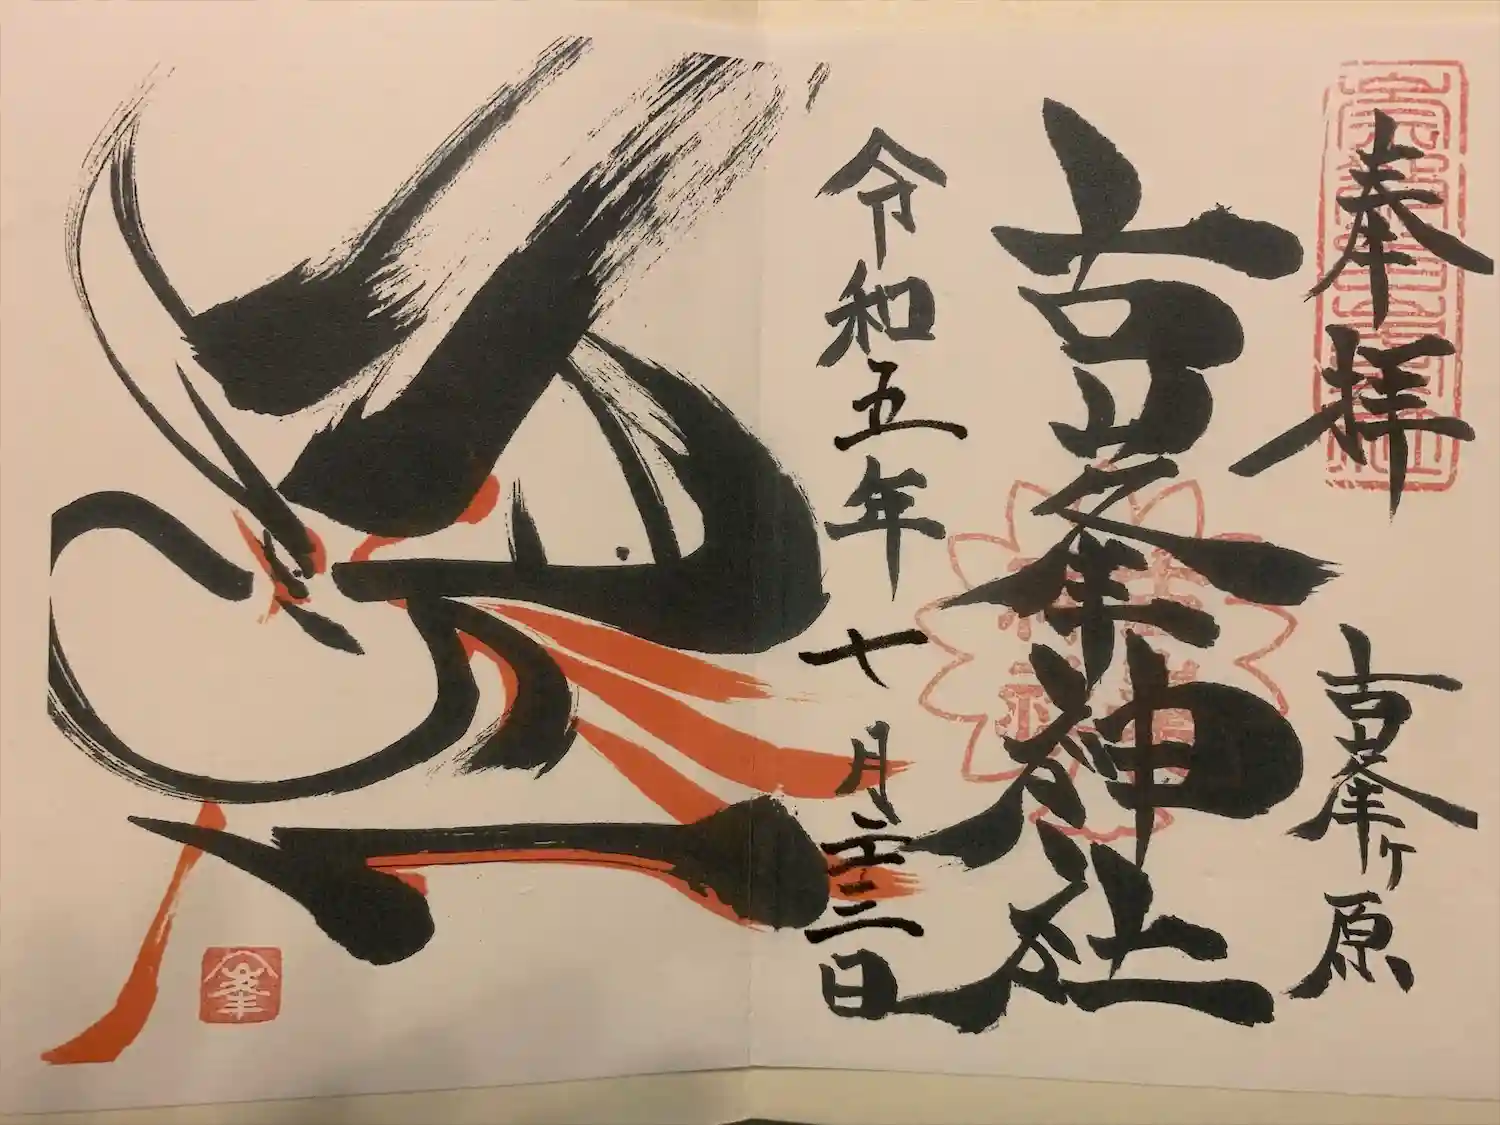 奉拝
古峯ヶ原
古峯神社
令和五年
十月廿三日
峯